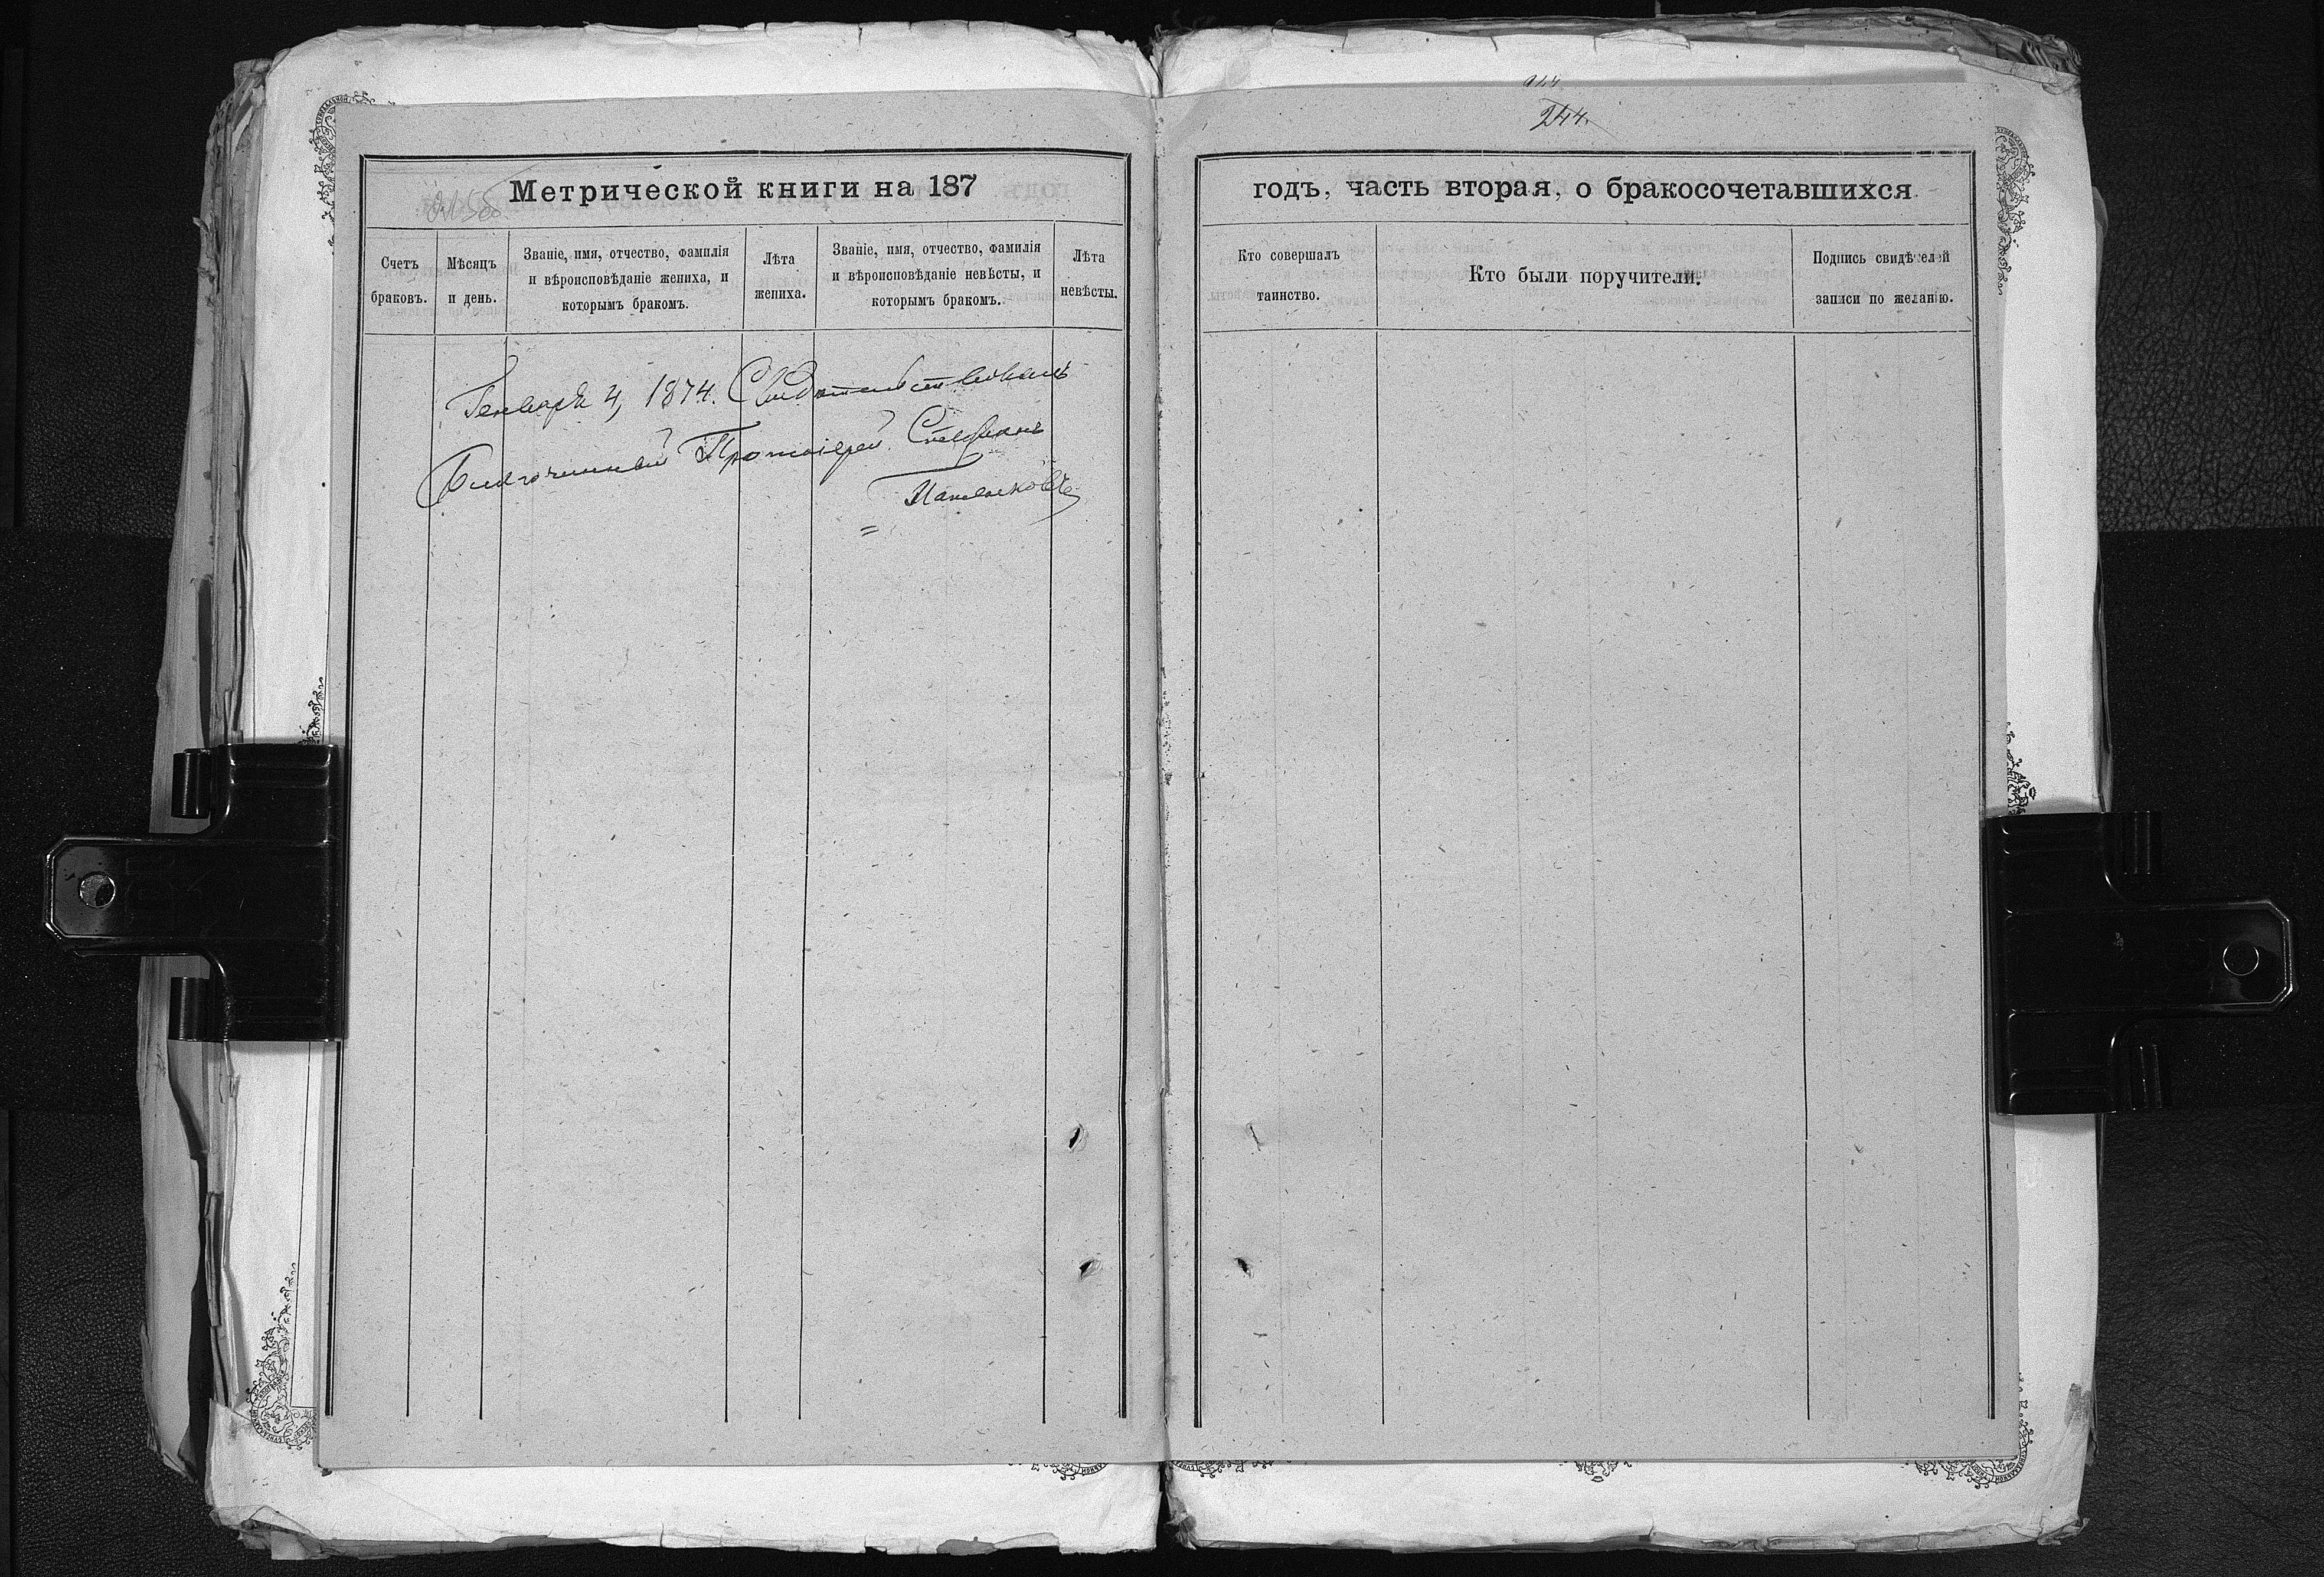 244.
Метрической книги на 187
годъ, часть вторая, о бракосочетавшихся.
Счетъ
браковъ.
Мѣсяцъ
и день.
Званіе, имя, отчество, фамилія
и вѣроисповѣданіе жениха, и
которымъ бракомъ.
Лѣта
жениха.
Званіе, имя, отчество, фамилія
и вѣроисповѣданіе невѣсты, и
которымъ бракомъ.
Лѣта
невѣсты.
Кто совершалъ
таинство.
Кто были поручители.
Подпись свидѣтелей
записи по желанію.
Генваря 4, 1874. Свидѣтельствовалъ
Благочинный Протоіерей Стефанъ